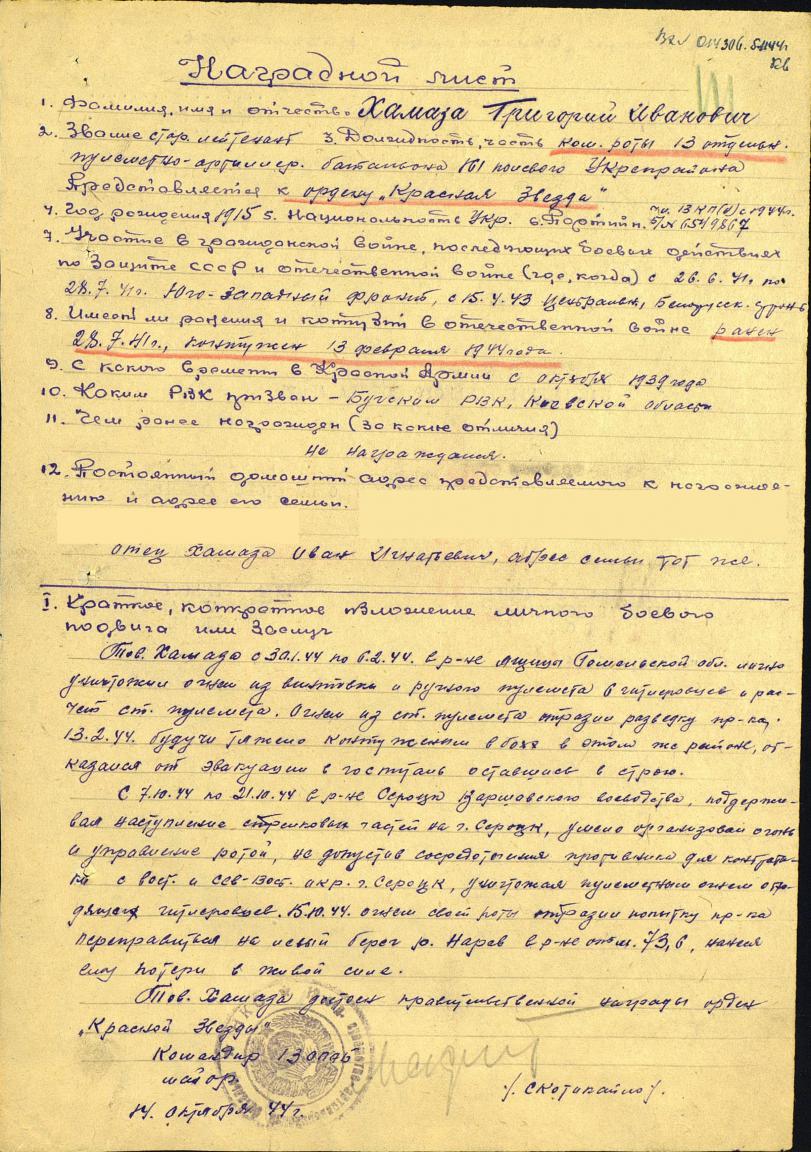 014306. 5.11.44г
Наградной лист
1. Фамилия, имя и отчество Хамаза Григорий Иванович
2. Звание стар. лейтенант 3. Должность, часть ком. роты 13 отдельн.
пулеметно-артиллер. батальона 161 полевого Укрепрайона
Представляется к ордену "Красная Звезда"
чл. ВКП(б) с 1944г.
4. Год рождения 1915 5. Национальность Укр. 6. Партийн. п/б № 6549867
7. Участие в гражданской войне, последующих боевых действиях
по защите СССР и отечественной войне (где, когда) с 26.6.41г. по
28.7.41г. Юго-Западный фронт, с 15.4.43 Центральн., Белорусск. фронт
8. Имеет ли ранения и контузии в отечественной войне ранен
28.7.41г., контужен 13 февраля 1944 года.
9. С какого времени в Красной Армии с октября 1939 года
10. Каким РВК призван – РВК, Киевской области
11. Чем ранее награжден (за какие отличия)
не награждался.
12. Постоянный домашний адрес представляемого к награжде-
нию и адрес его семьи.
отец Хамаза Иван Игнатьевич, адрес семьи тот же.
I. Краткое, конкретное изложение личного боевого
подвига или заслуг
Тов. Хамаза с 30.1.44 по 6.2.44. в р-не Гомельской обл. лично
уничтожил огнем из винтовки и ручного пулемета 6 гитлеровцев и рас-
чет ст. пулемета. Огнем из ст. пулемета отразил разведку пр-ка.
13.2.44. будучи тяжело контуженным в боях в этом же районе, от-
казался от эвакуации в госпиталь оставшись в строю.
С 7.10.44 по 21.10.44 в р-не Сероцк Варшавского воеводства, поддержи-
вая наступление стрелковых частей на г. Сероцк, умело организовал огонь
и управление ротой, не допустив сосредоточения противника для контрата-
ки с вост. и сев-вост. окр. г. Сероцк, уничтожая пулеметным огнем отхо-
дящих гитлеровцев. 15.10.44. огнем своей роты отразил попытку пр-ка
переправиться на левый берег р. Нарев в р-не отм. 73,6, нанеся
ему потери в живой силе.
Тов. Хамаза достоин правительственной награды орден
"Красной Звезды"
Командир 13 ОПАБ
майор
/. Скотикайло /.
октября 44г.